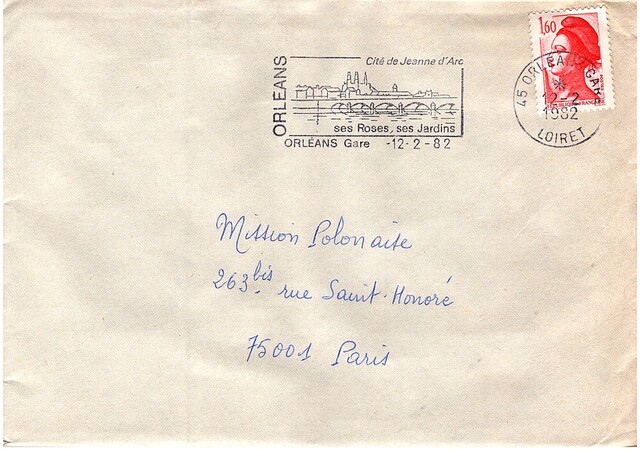 ORLEANS
Cité de Jeanne d'Arc
ses Roses, ses Jardins
ORLEANS Gare -12-2-82
1,60
45 ORLEANS GARE
12-2
1982
LOIRET
Mission Polonaise
263 bis rue Saint-Honoré
75001 Paris